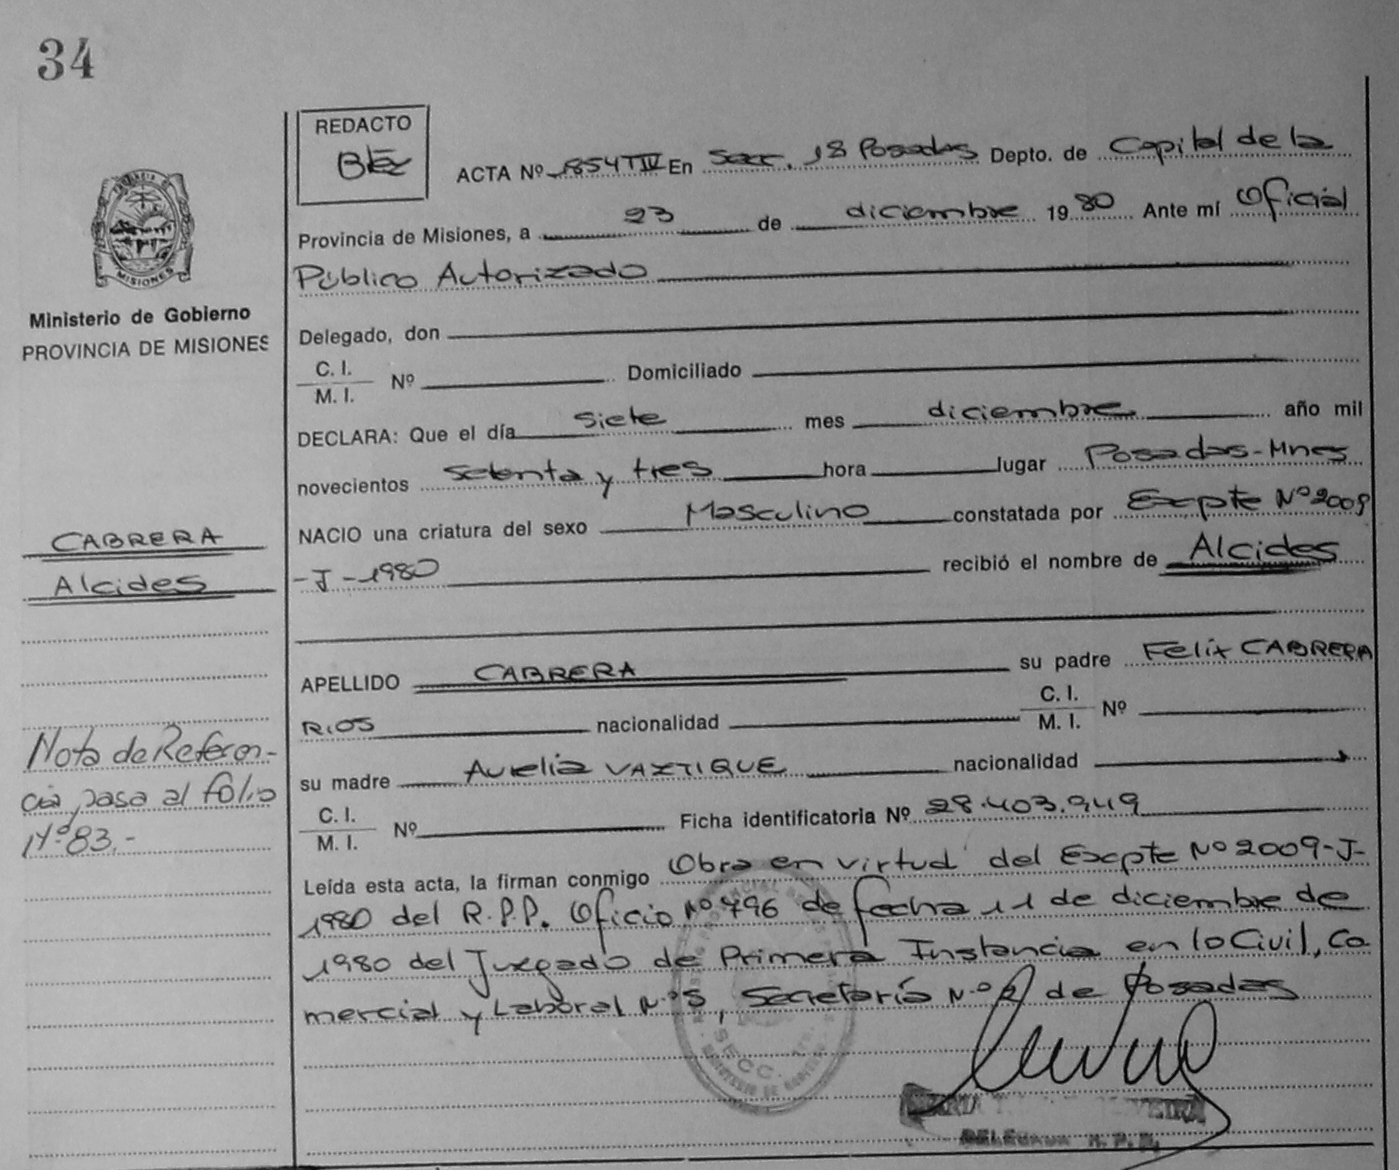 34
REDACTO
Bez
ACTA Nº 1854 T IV En Secc. 18 Posadas Depto. de Capital de la
Provincia de Misiones, a 23 de diciembre 19 80 Ante mí Oficial
Público Autorizado
MISIONES
Ministerio de Gobierno
PROVINCIA DE MISIONES
Delegado, don
C. I.
M. I. Nº Domiciliado
DECLARA: Que el día siete mes diciembre año mil
novecientos setenta y tres hora lugar Posadas-Mnes
NACIO una criatura del sexo Masculino constatada por Expte Nº 2009
-J-1980 recibió el nombre de Alcides
CABRERA
Alcides
APELLIDO CABRERA su padre Felix CABRERA
RIOS nacionalidad C. I.
M. I. Nº
su madre Aurelia nacionalidad
C. I.
M. I. Nº Ficha identificatoria Nº 28.403.949
Nota de Referen-
cia, pasa al folio
Nº 83.-
Leída esta acta, la firman conmigo Obra en virtud del Expte Nº 2009-J-
1980 del R.P.P. Oficio Nº 796 de fecha 11 de diciembre de
1980 del Juzgado de Primera Instancia en lo Civil, Co
mercial y Laboral Nº 5, Secretaría Nº 2 de Posadas
SECC.
DELEGADA R.P.P.